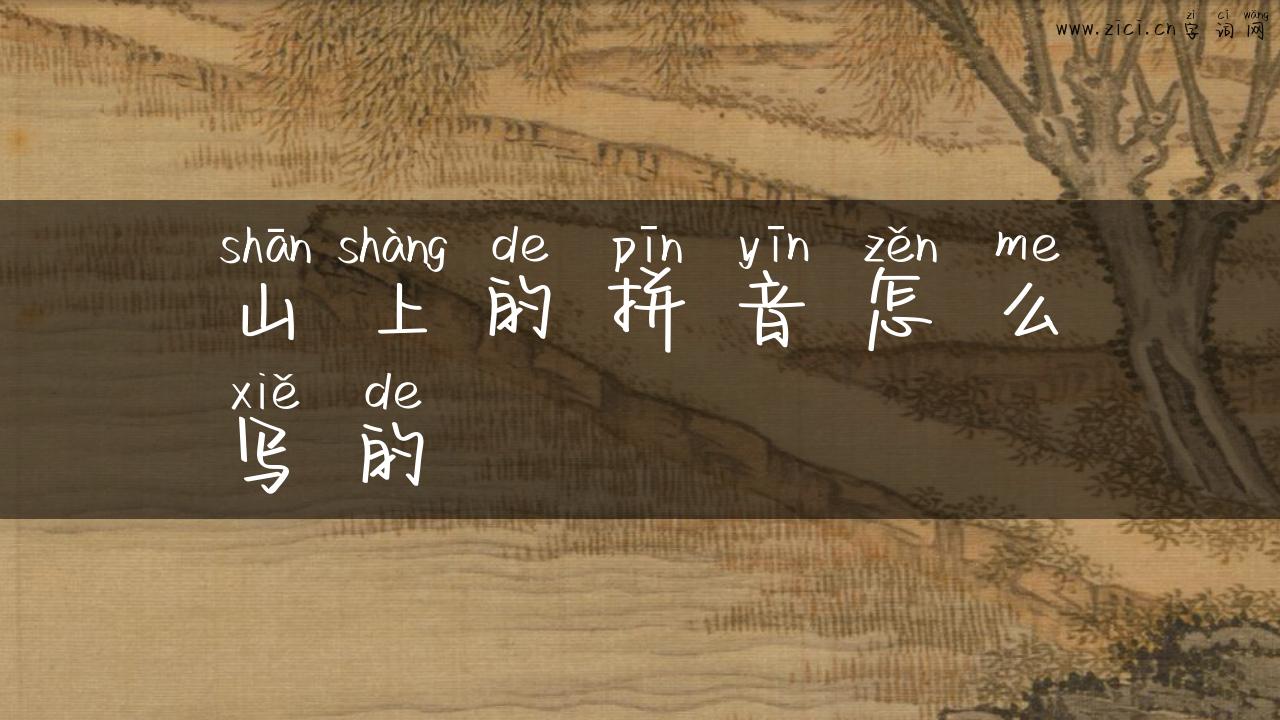 zì cí wǎng
www.zici.cn 字 词 网
shān shàng de pīn yīn zěn me
山 上 的 拼 音 怎 么
xiě de
写 的